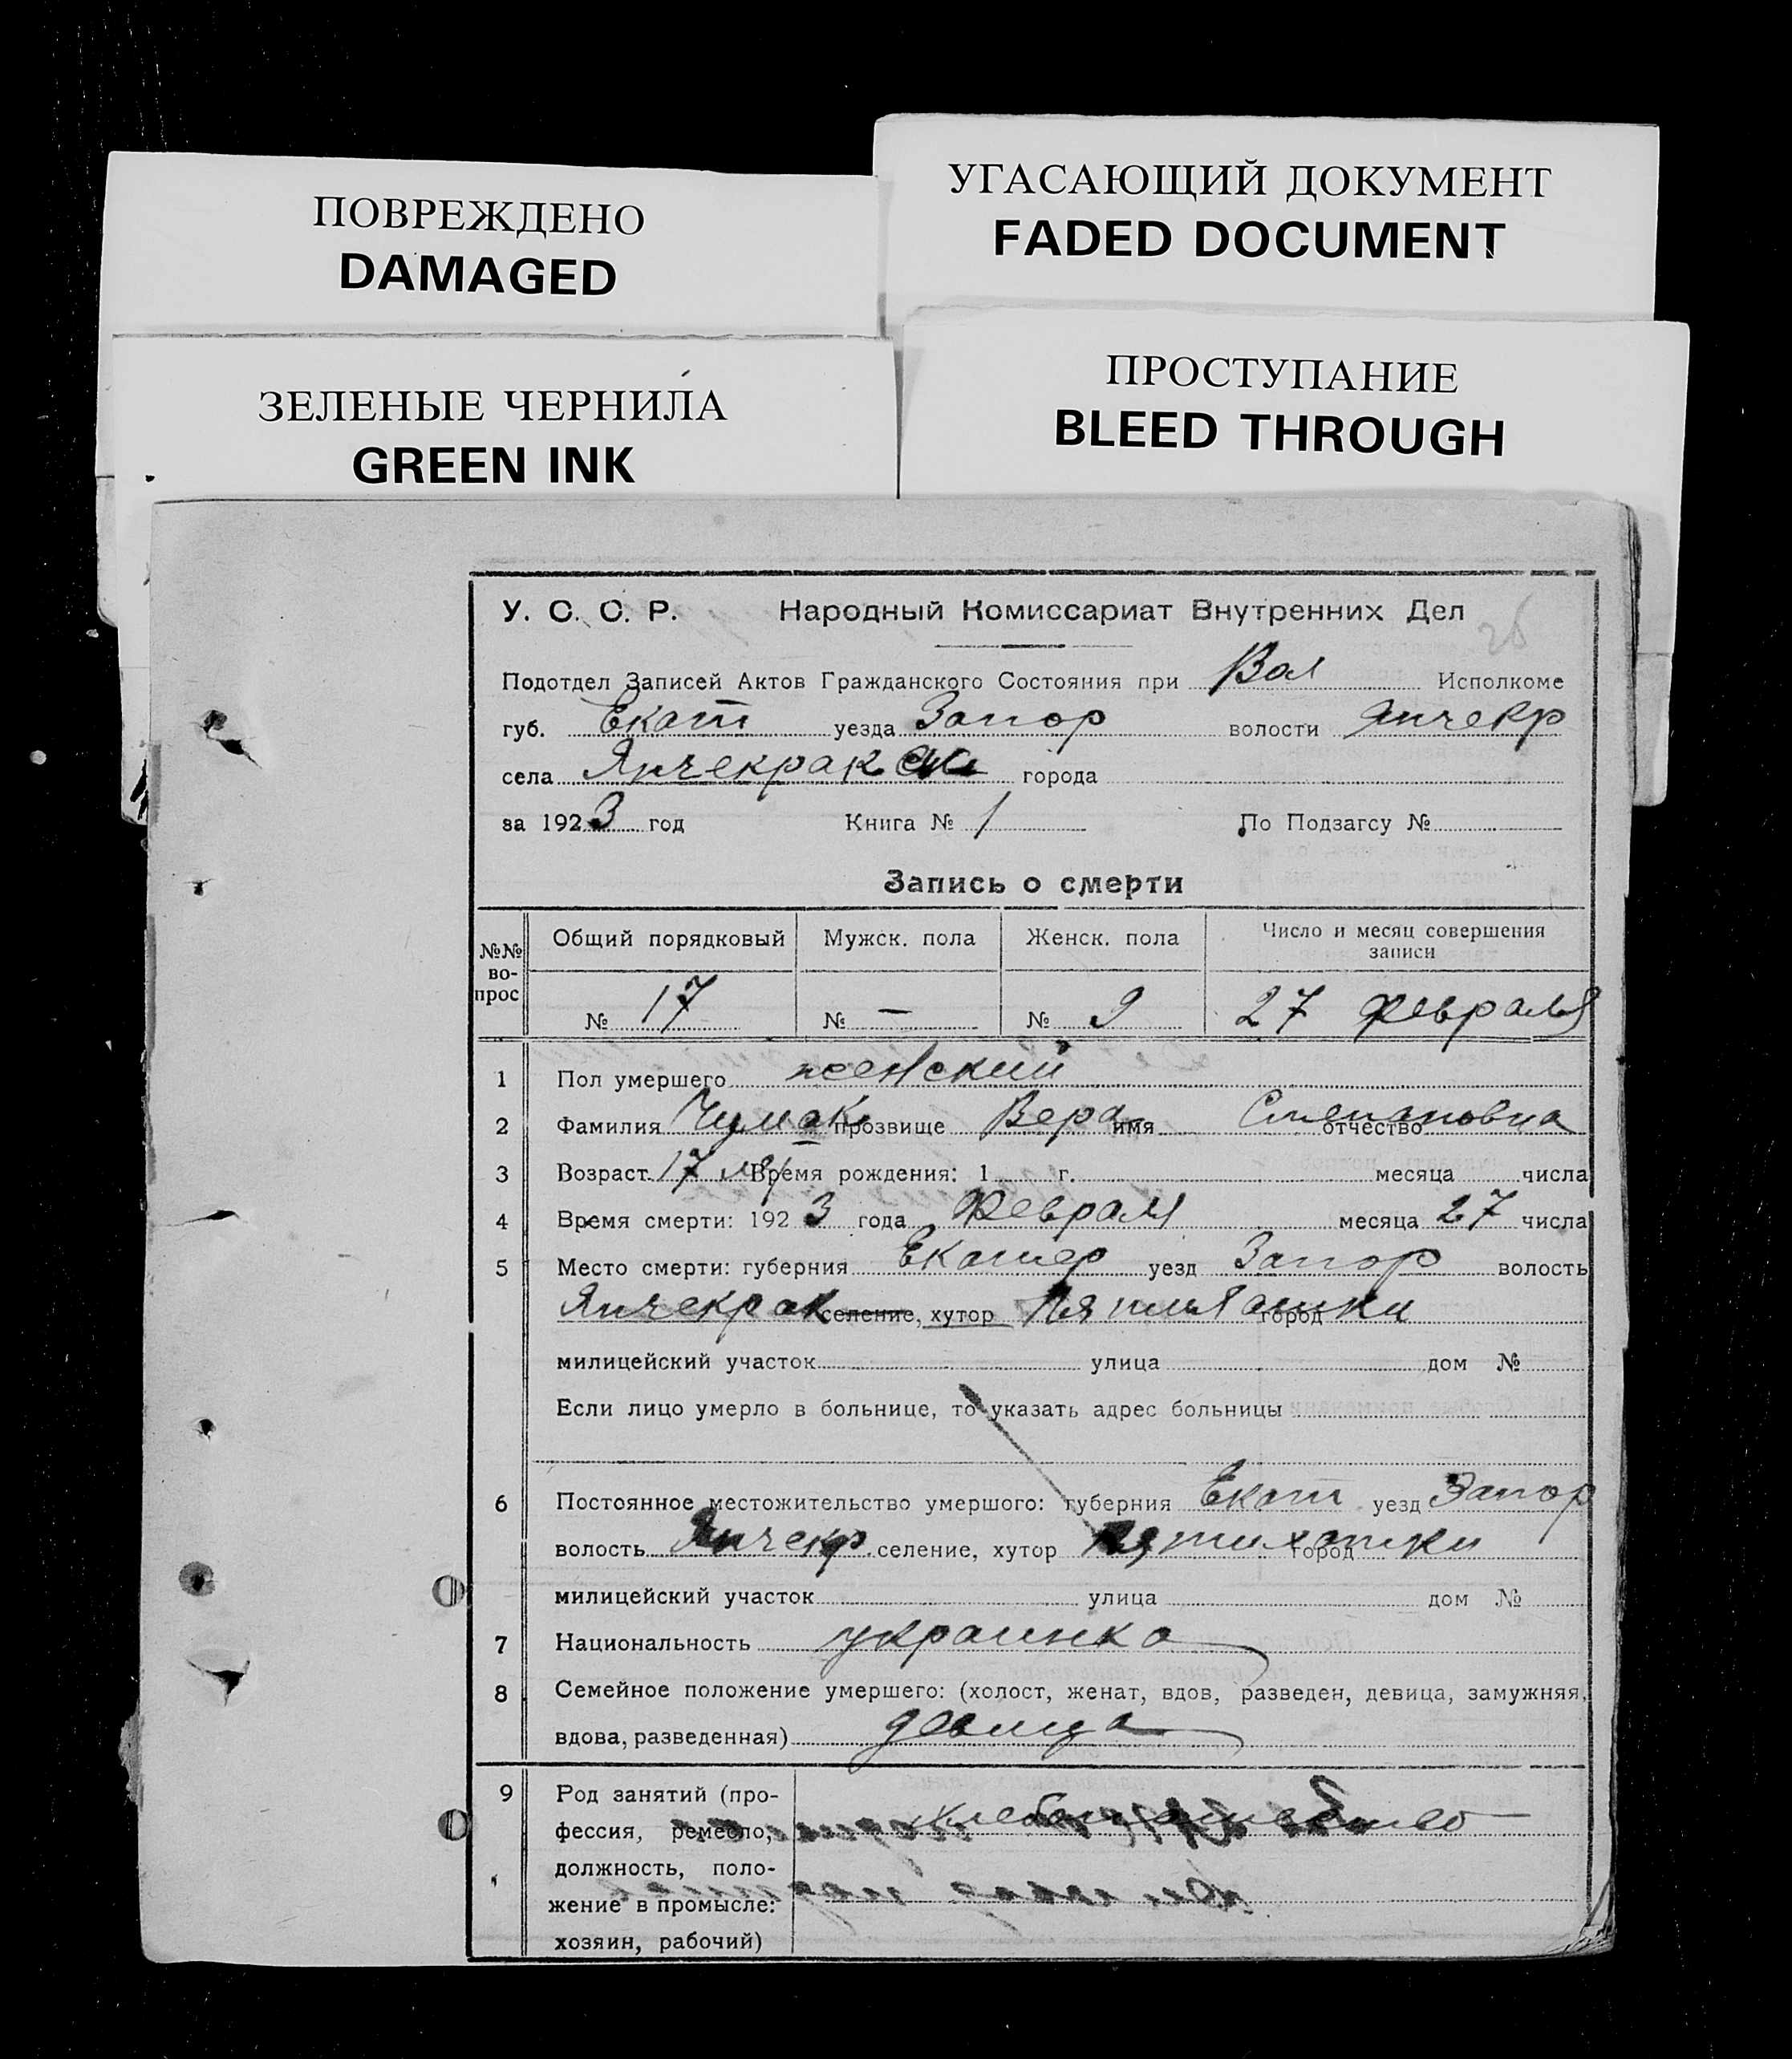 УГАСАЮЩИЙ ДОКУМЕНТ
FADED DOCUMENT
ПОВРЕЖДЕНО
DAMAGED
ПРОСТУПАНИЕ
BLEED THROUGH
ЗЕЛЕНЫЕ ЧЕРНИЛА
GREEN INK
У. С. С. Р. Народный Комиссариат Внутренних Дел
Подотдел Записей Актов Гражданского Состояния при Вол Исполкоме
губ. Екат уезда Запор волости Янчекр
села Янчекрак города
за 1923 год Книга № 1 По Подзагсу №
Запись о смерти
№№ во- прос Общий порядковый Мужск. пола Женск. пола Число и месяц совершения записи
№ 17 № — № 9 27 февраля
1 Пол умершего женский
2 Фамилия Чумак прозвище Вера имя Степановна отчество
3 Возраст 17 лет Время рождения: 1 г. месяца числа
4 Время смерти: 1923 года Февраля месяца 27 числа
5 Место смерти: губерния Екатер уезд Запор волость
Янчекрак селение, хутор Пятихатки город
милицейский участок улица дом №
Если лицо умерло в больнице, то указать адрес больницы
6 Постоянное местожительство умершого: губерния Екат уезд Запор
волость Янчекр. селение, хутор Пятихатки город
милицейский участок улица дом №
7 Национальность украинка
8 Семейное положение умершего: (холост, женат, вдов, разведен, девица, замужняя,
вдова, разведенная) девица
9 Род занятий (про-
фессия, ремесло, хлебопашество
должность, поло-
жение в промысле:
хозяин, рабочий)